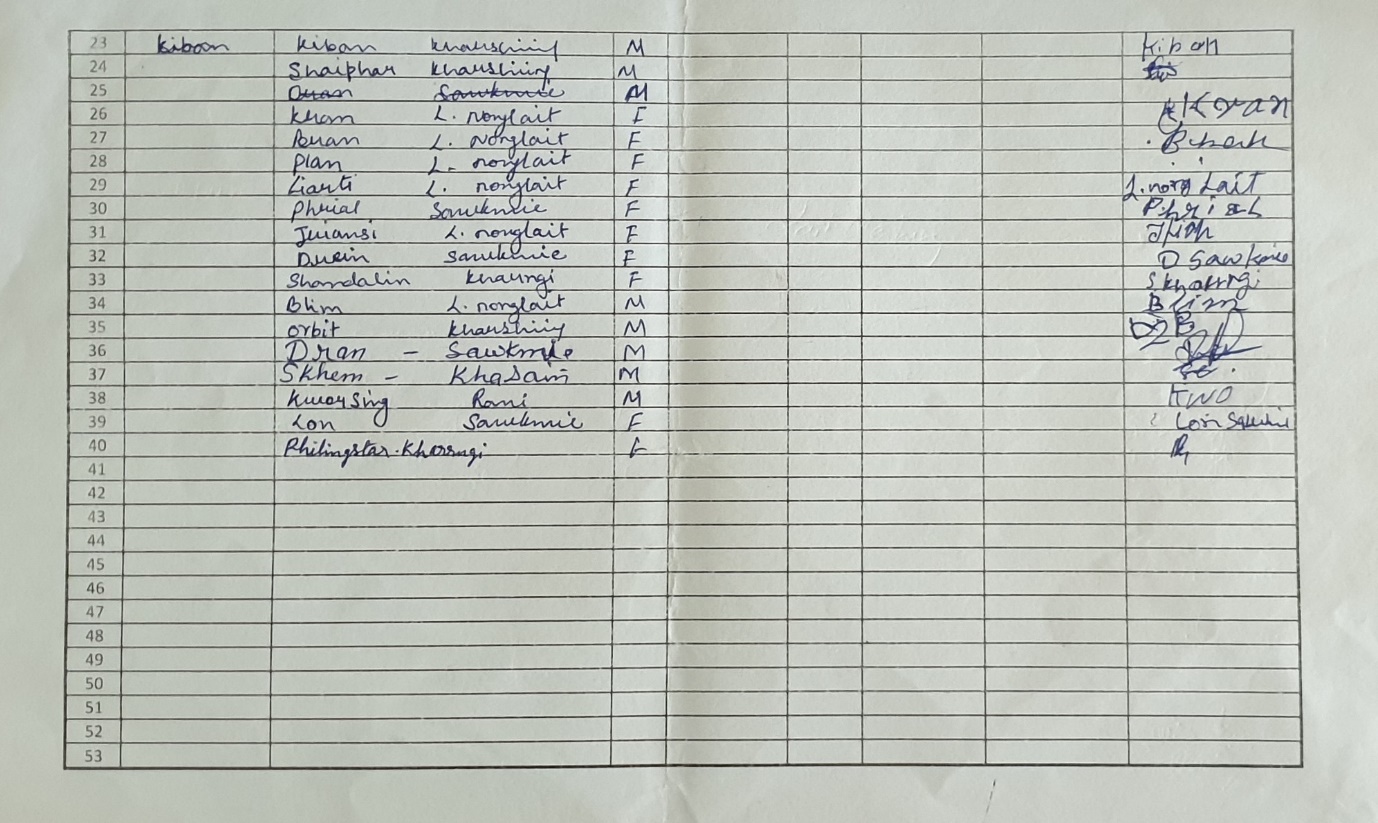 23 kiboon Kiban kharshiing M Kiban
24 Shaiphar kharshiing M
25 Dran Sawkmie M
26 Khan L. nonglait F Kran
27 Buan L. Nonglait F
28 Plan L. nonglait F
29 Liarti L. nonglait F L. nong Lait
30 Phrial Sawkmie F Phrial
31 Juiansi L. nonglait F
32 Duein Sawkmie F D Sawkmie
33 Shandalin kharngi F S kharngi
34 Blim L. nonglait M Blim
35 orbit kharshiing M
36 Dran - Sawkmie M
37 Skhem - Khasain M
38 KworSing Rani M Kwo
39 Lon Sawkmie F Lon Sawkmie
40 Philingstar. Kharngi F
41
42
43
44
45
46
47
48
49
50
51
52
53